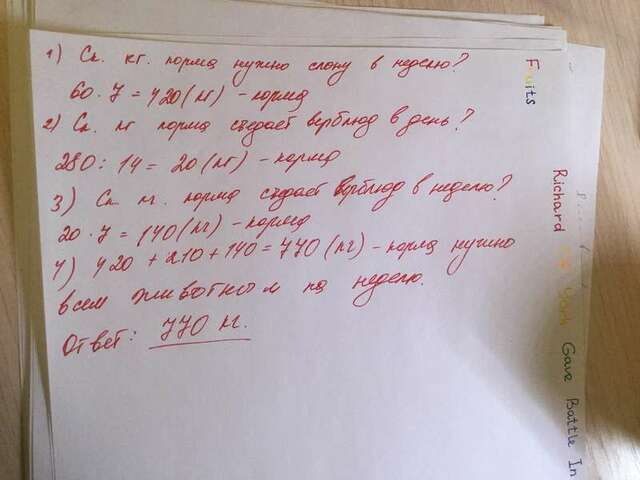 1) Ск. кг. корма нужно слону в неделю?
60 · 7 = 420 (кг) - корма
2) Ск. кг корма съедает верблюд в день?
280 : 14 = 20 (кг) - корма
3) Ск. кг. корма съедает верблюд в неделю?
20 · 7 = 140 (кг) - корма
4) 420 + 210 + 140 = 770 (кг) - корма нужно
всем животным на неделю.
Ответ: 770 кг.
Fruits
Richard York Gave Battle In